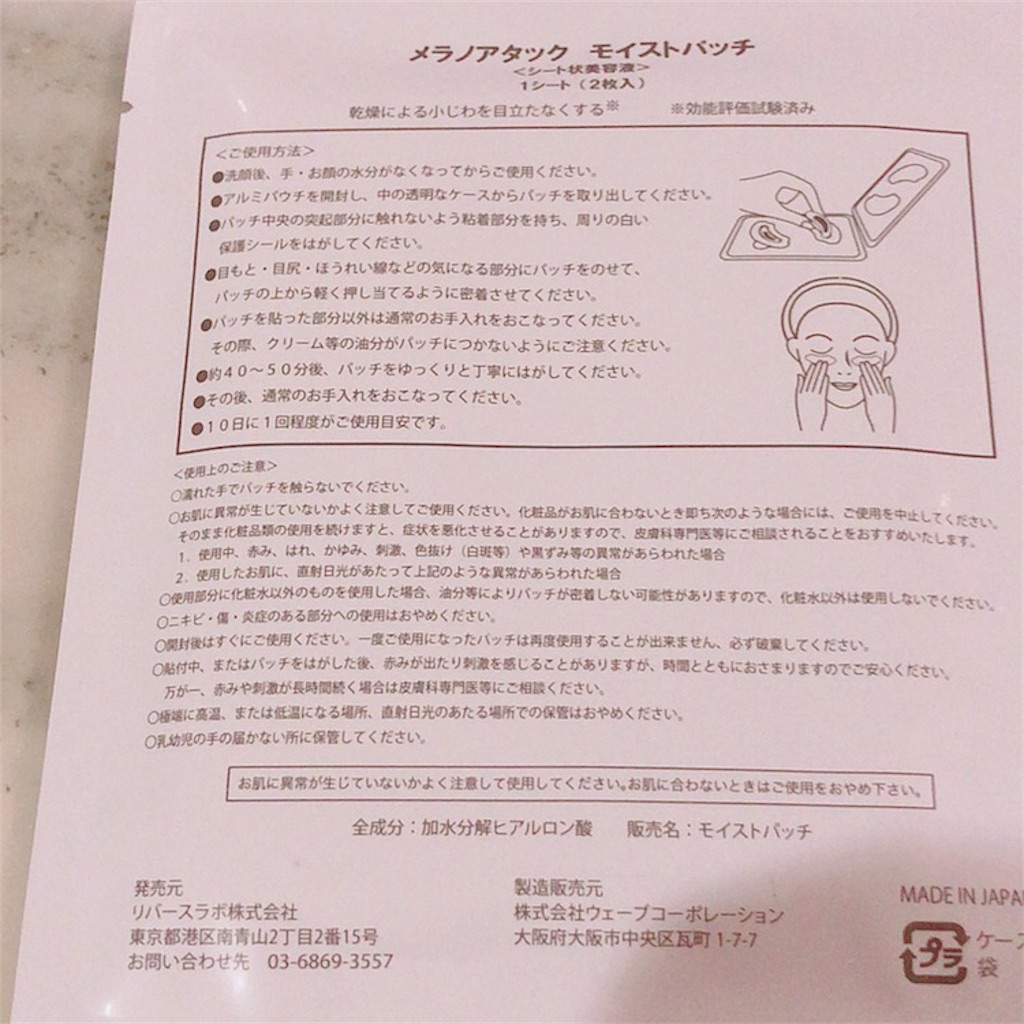 メラノアタック モイストパッチ
<シート状美容液>
1シート(2枚入)
乾燥による小じわを目立たなくする※ ※効能評価試験済み
<ご使用方法>
●洗顔後、手・お顔の水分がなくなってからご使用ください。
●アルミパウチを開封し、中の透明なケースからパッチを取り出してください。
●パッチ中央の突起部分に触れないよう粘着部分を持ち、周りの白い
保護シールをはがしてください。
●目もと・目尻・ほうれい線などの気になる部分にパッチをのせて、
パッチの上から軽く押し当てるように密着させてください。
●パッチを貼った部分以外は通常のお手入れをおこなってください。
その際、クリーム等の油分がパッチにつかないようにご注意ください。
●約40～50分後、パッチをゆっくりと丁寧にはがしてください。
●その後、通常のお手入れをおこなってください。
●10日に1回程度がご使用目安です。
<使用上のご注意>
○濡れた手でパッチを触らないでください。
○お肌に異常が生じていないかよく注意してご使用ください。化粧品がお肌に合わないとき即ち次のような場合には、ご使用を中止してください。
そのまま化粧品類の使用を続けますと、症状を悪化させることがありますので、皮膚科専門医等にご相談されることをおすすめいたします。
1. 使用中、赤み、はれ、かゆみ、刺激、色抜け(白斑等)や黒ずみ等の異常があらわれた場合
2. 使用したお肌に、直射日光があたって上記のような異常があらわれた場合
○使用部分に化粧水以外のものを使用した場合、油分等によりパッチが密着しない可能性がありますので、化粧水以外は使用しないでください。
○ニキビ・傷・炎症のある部分への使用はおやめください。
○開封後はすぐにご使用ください。一度ご使用になったパッチは再度使用することが出来ません、必ず破棄してください。
○貼付中、またはパッチをはがした後、赤みが出たり刺激を感じることがありますが、時間とともにおさまりますのでご安心ください。
万が一、赤みや刺激が長時間続く場合は皮膚科専門医等にご相談ください。
○極端に高温、または低温になる場所、直射日光のあたる場所での保管はおやめください。
○乳幼児の手の届かない所に保管してください。
お肌に異常が生じていないかよく注意して使用してください。お肌に合わないときはご使用をおやめ下さい。
全成分：加水分解ヒアルロン酸 販売名：モイストパッチ
発売元
リバースラボ株式会社
東京都港区南青山2丁目2番15号
お問い合わせ先 03-6869-3557
製造販売元
株式会社ウェーブコーポレーション
大阪府大阪市中央区瓦町1-7-7
MADE IN JAPA
プラ
ケース
袋